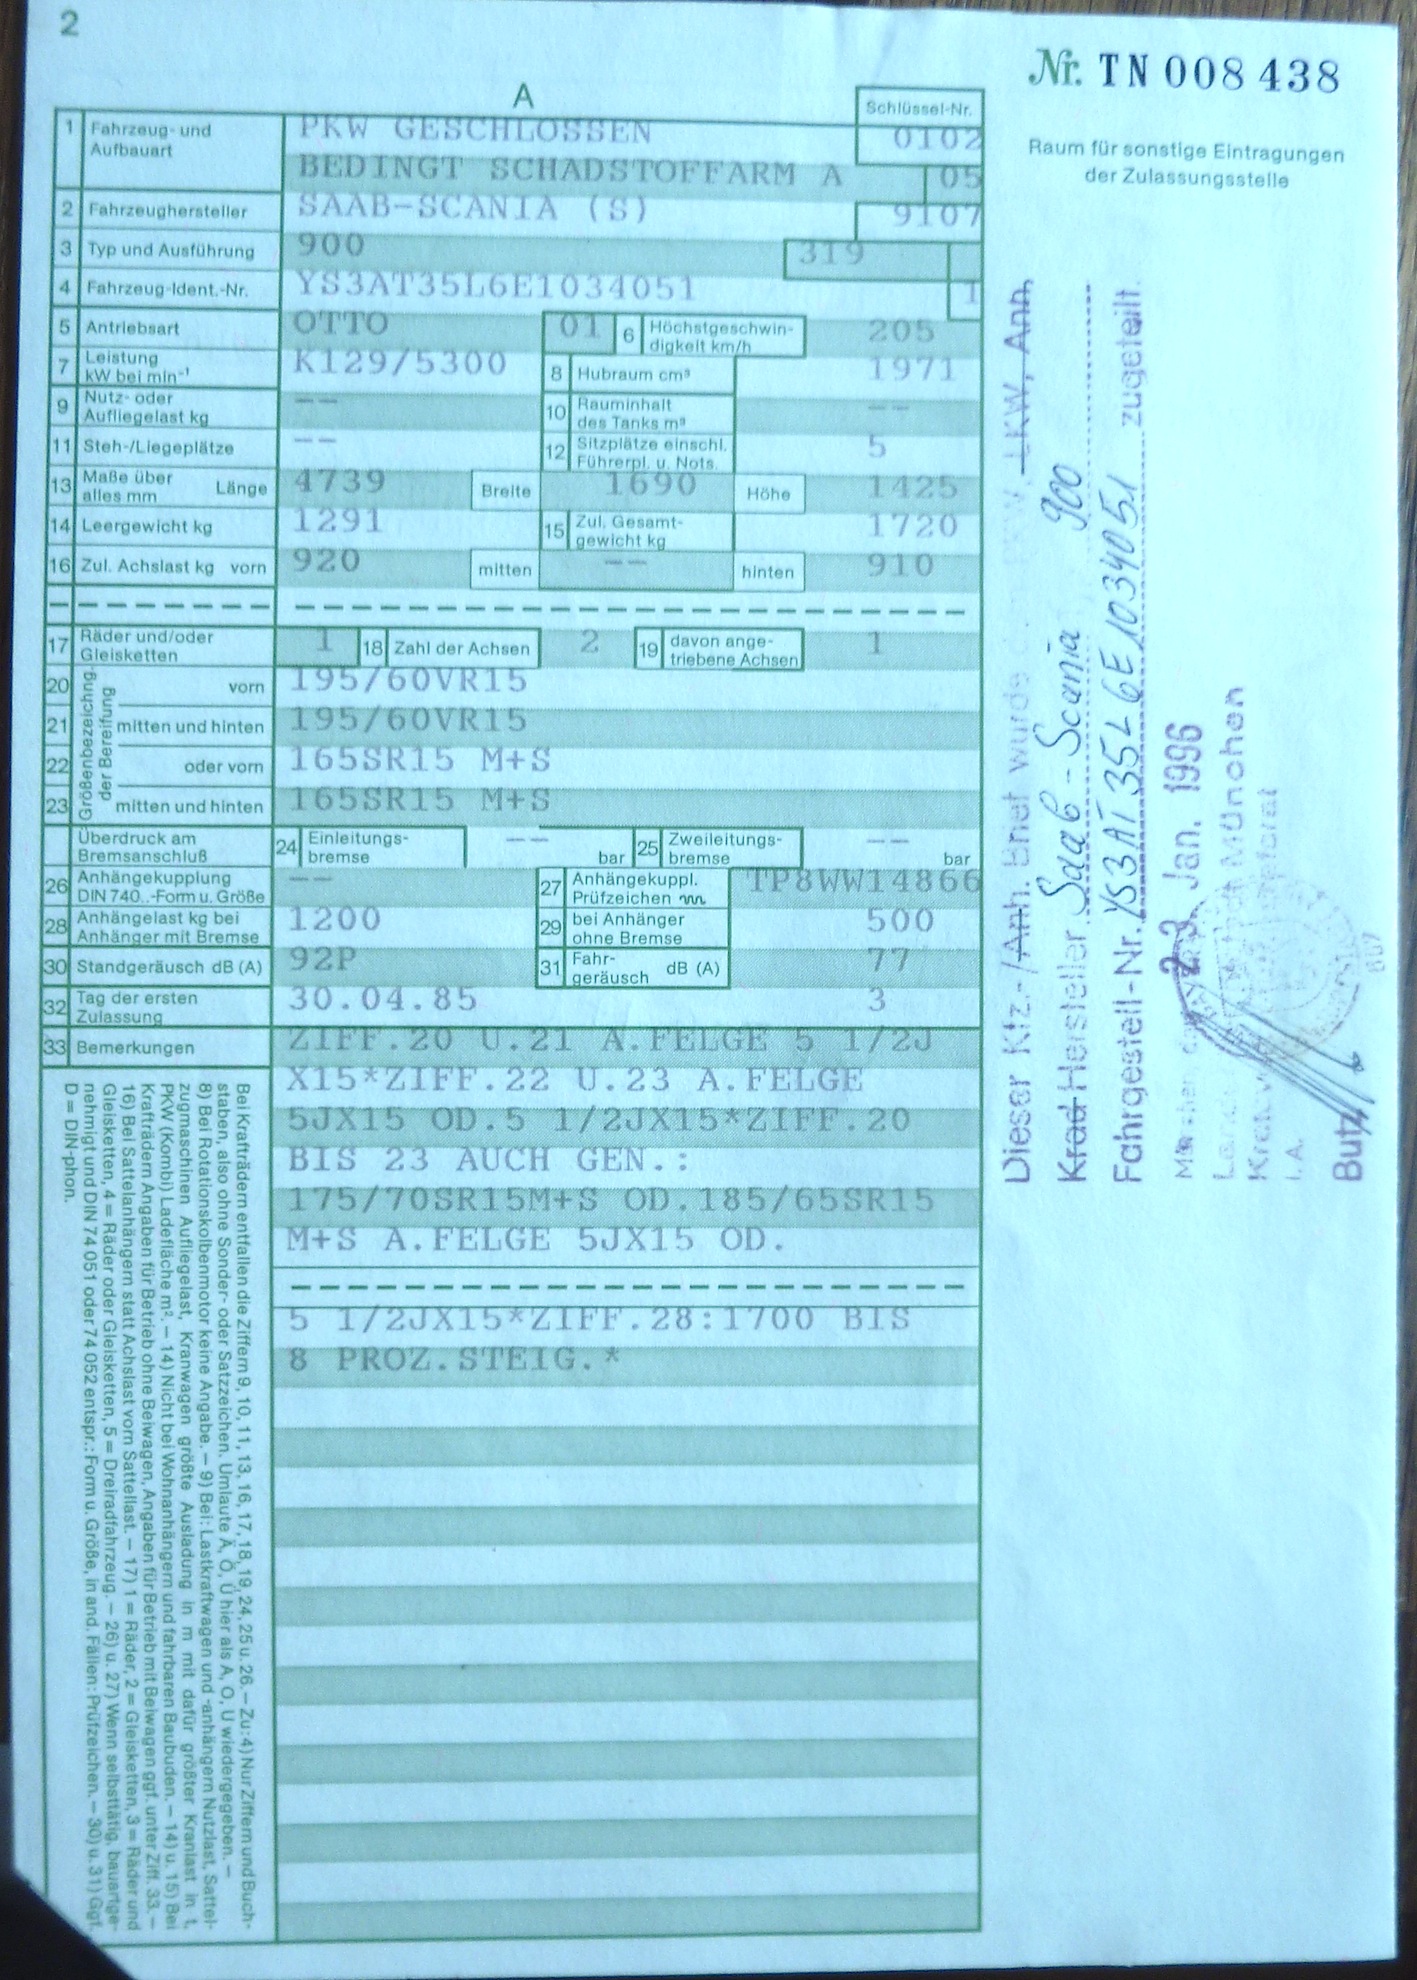 2
Nr. TN 008 438
A
Schlüssel-Nr.
Raum für sonstige Eintragungen
der Zulassungsstelle
1 Fahrzeug- und Aufbauart PKW GESCHLOSSEN 0102
BEDINGT SCHADSTOFFARM A 05
2 Fahrzeughersteller SAAB-SCANIA (S) 9107
3 Typ und Ausführung 900 319
4 Fahrzeug-Ident.-Nr. YS3AT35L6E1034051 1
5 Antriebsart OTTO 01 6 Höchstgeschwin-digkeit km/h 205
7 Leistung kW bei min⁻¹ K129/5300 8 Hubraum cm³ 1971
9 Nutz- oder Aufliegelast kg -- 10 Rauminhalt des Tanks m³ --
11 Steh-/Liegeplätze -- 12 Sitzplätze einschl. Führerpl. u. Nots. 5
13 Maße über alles mm Länge 4739 Breite 1690 Höhe 1425
14 Leergewicht kg 1291 15 Zul. Gesamt-gewicht kg 1720
16 Zul. Achslast kg vorn 920 mitten -- hinten 910
17 Räder und/oder Gleisketten 1 18 Zahl der Achsen 2 19 davon ange-triebene Achsen 1
Größenbezeichnung der Bereifung
20 vorn 195/60VR15
21 mitten und hinten 195/60VR15
22 oder vorn 165SR15 M+S
23 mitten und hinten 165SR15 M+S
Überdruck am Bremsanschluß 24 Einleitungs-bremse -- bar 25 Zweileitungs-bremse -- bar
26 Anhängekupplung DIN 740..-Form u. Größe -- 27 Anhängekuppl. Prüfzeichen TP8WW14866
28 Anhängelast kg bei Anhänger mit Bremse 1200 29 bei Anhänger ohne Bremse 500
30 Standgeräusch dB (A) 92P 31 Fahr-geräusch dB (A) 77
32 Tag der ersten Zulassung 30.04.85 3
33 Bemerkungen ZIFF.20 U.21 A.FELGE 5 1/2J
X15*ZIFF.22 U.23 A.FELGE
5JX15 OD.5 1/2JX15*ZIFF.20
BIS 23 AUCH GEN.:
175/70SR15M+S OD.185/65SR15
M+S A.FELGE 5JX15 OD.
5 1/2JX15*ZIFF.28:1700 BIS
8 PROZ.STEIG.*
Bei Krafträdern entfallen die Ziffern 9, 10, 11, 13, 16, 17, 18, 19, 24, 25 u. 26. – Zu: 4) Nur Ziffern und Buch-
staben, also ohne Sonder- oder Satzzeichen. Umlaute Ä, Ö, Ü hier als A, O, U wiedergegeben. –
8) Bei Rotationskolbenmotor keine Angabe. – 9) Bei: Lastkraftwagen und -anhängern Nutzlast, Sattel-
zugmaschinen Aufliegelast, Kranwagen größte Ausladung in m mit dafür größter Kranlast in t,
PKW (Kombi) Ladefläche m². – 14) Nicht bei Wohnanhängern und fahrbaren Baubuden. – 14) u. 15) Bei
Krafträdern Angaben für Betrieb ohne Beiwagen, Angaben für Betrieb mit Beiwagen ggf. unter Ziff. 33. –
16) Bei Sattelanhängern statt Achslast vorn Sattellast. – 17) 1 = Räder, 2 = Gleisketten, 3 = Räder und
Gleisketten, 4 = Räder oder Gleisketten, 5 = Dreiradfahrzeug. – 26) u. 27) Wenn selbsttätig, bauartge-
nehmigt und DIN 74 051 oder 74 052 entspr.: Form u. Größe, in and. Fällen: Prüfzeichen. – 30) u. 31) Ggf.
D = DIN-phon.
Dieser Kfz.- /Anh. Brief wurde LKW, Anh.
Krad Hersteller Saab - Scania 900
Fahrgestell-Nr. YS3AT35L6E1034051 zugeteilt.
23. Jan. 1996
München
I. A.
Butz